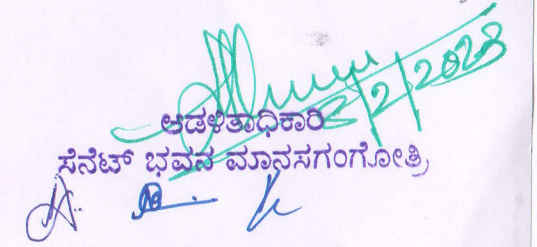 2/2/2023
ಆಡಳಿತಾಧಿಕಾರಿ
ಸೆನೆಟ್ ಭವನ ಮಾನಸಗಂಗೋತ್ರಿ